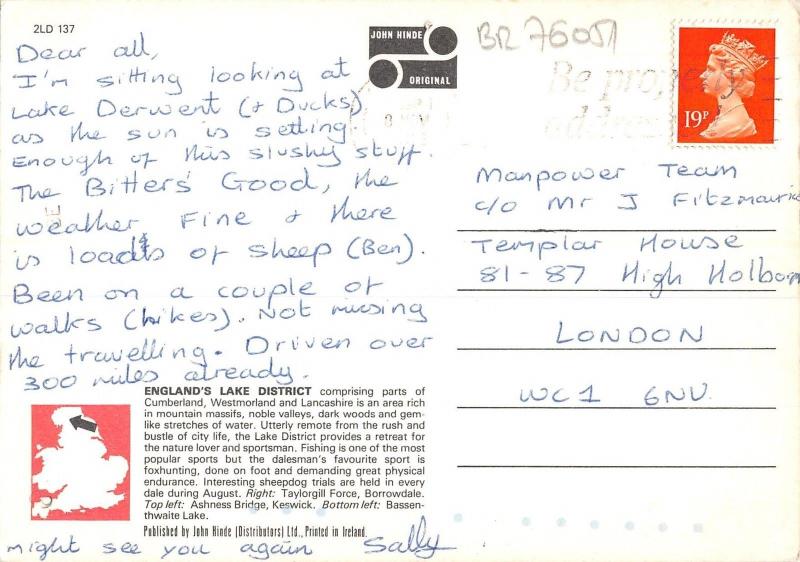 2LD 137
Dear all,
I'm sitting looking at
Lake Derwent (+ Ducks)
as the sun is setting
Enough of this slushy stuff.
The Bitters' Good, the
weather Fine + there
is loads of sheep (Ben).
Been on a couple of
walks (hikes). Not missing
the travelling. Driven over
300 miles already.
might see you again Sally
JOHN HINDE
ORIGINAL
BR 76051
Be properly
addres
19P
Manpower Team
c/o Mr J Fitzmaurice
Templar House
81-87 High Holborn
LONDON
WC1 6NU
ENGLAND'S LAKE DISTRICT comprising parts of
Cumberland, Westmorland and Lancashire is an area rich
in mountain massifs, noble valleys, dark woods and gem-
like stretches of water. Utterly remote from the rush and
bustle of city life, the Lake District provides a retreat for
the nature lover and sportsman. Fishing is one of the most
popular sports but the dalesman's favourite sport is
foxhunting, done on foot and demanding great physical
endurance. Interesting sheepdog trials are held in every
dale during August. Right: Taylorgill Force, Borrowdale.
Top left: Ashness Bridge, Keswick. Bottom left: Bassen-
thwaite Lake.
Published by John Hinde (Distributors) Ltd., Printed in Ireland.